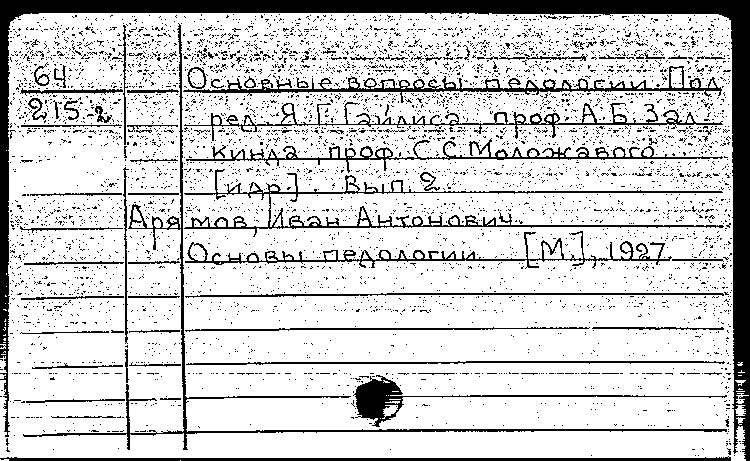 64 Основные вопросы педологии. Под
215-2 ред. Я. Г. Гайлиса, проф. А. Б. Зал-
кинда, проф. С. С. Моложавого...
[и др.]. Вып. 2.
Арямов, Иван Антонович.
Основы педологии. [М.], 1927.